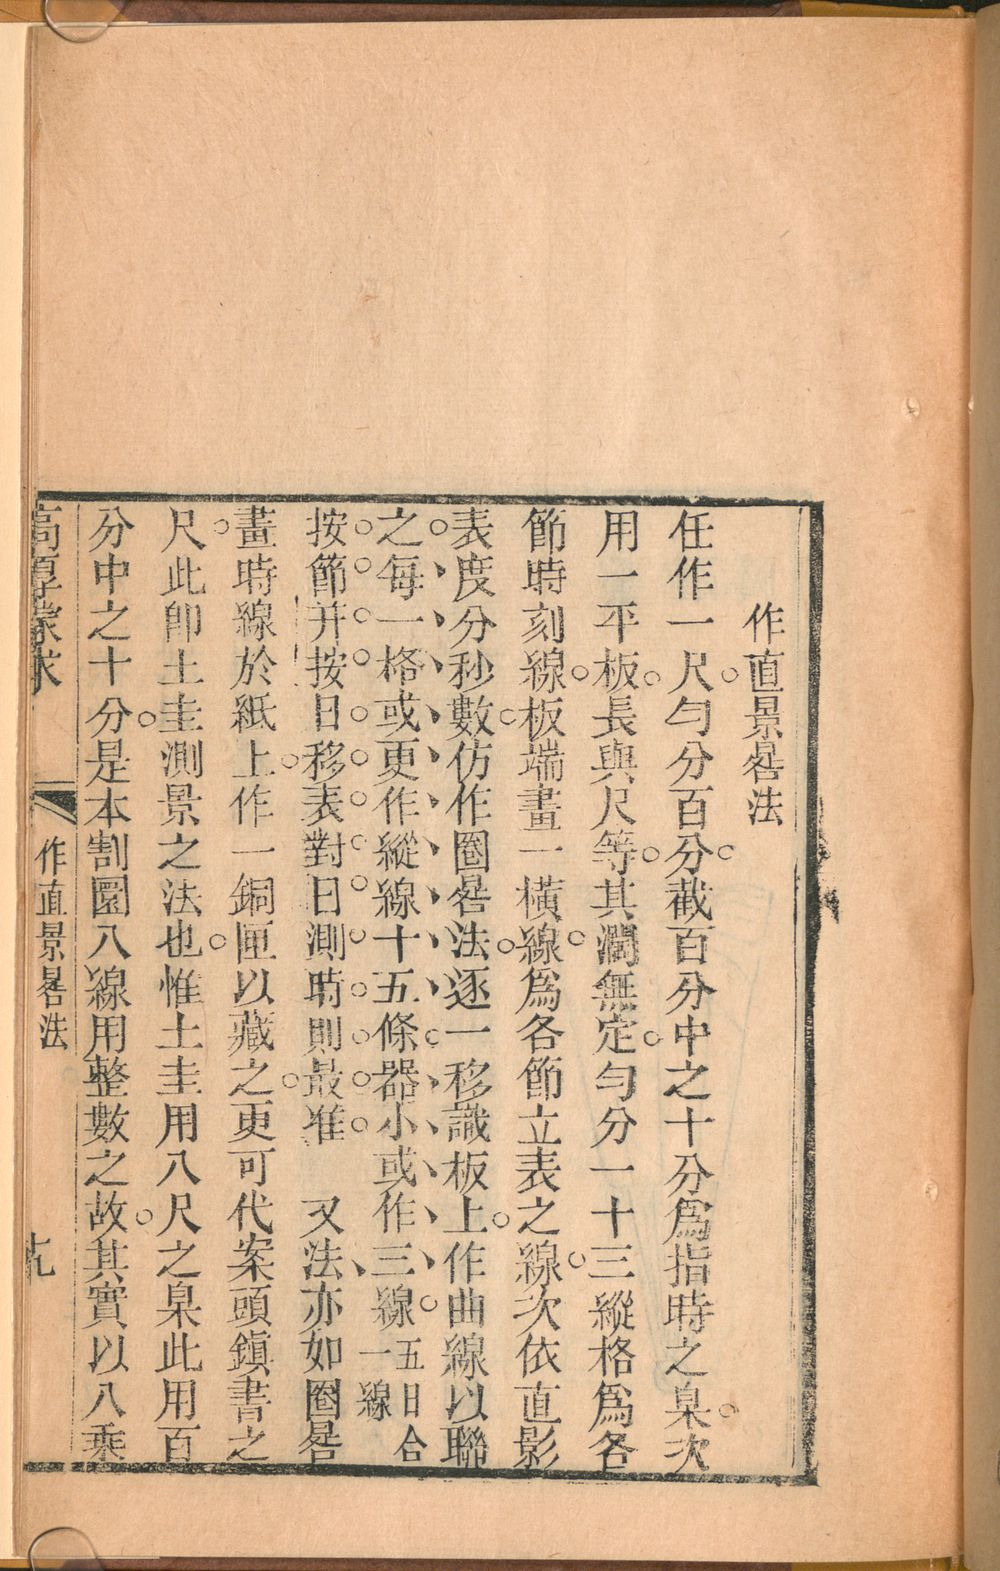 作直景晷法
任作一尺勻分百分截百分中之十分爲指時之臬次
用一平板長與尺等其濶無定勻分一十三縱格爲各
節時刻線板端畫一橫線爲各節立表之線次依直影
表度分秒數仿作圈晷法逐一移識板上作曲線以聯
之每一格或更作縱線十五條器小或作三線五日合一線
按節并按日移表對日測時則最准 又法亦如圈晷
畫時線於紙上作一銅匣以藏之更可代案頭鎮書之
尺此卽土圭測景之法也惟土圭用八尺之臬此用百
分中之十分是本割圜八線用整數之故其實以八乘
高厚蒙求 作直景晷法